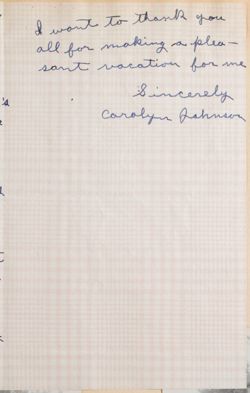 I want to thank you
all for making a plea-
sant vacation for me
Sincerely
Carolyn Johnson